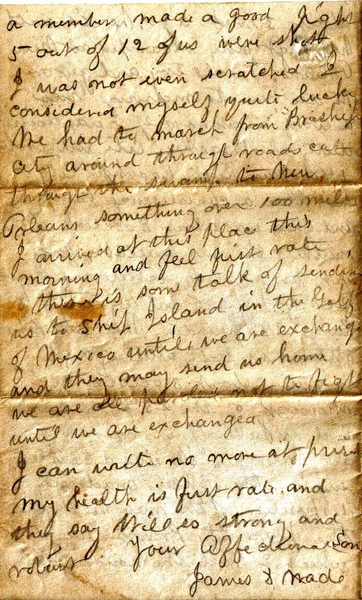 a member made a good fight
5 out of 12 of us were shot
I was not even scratched I
considered myself quite lucky
We had to march from Brasher
City around through roads cut
through the swamp to New
Orleans something over 100 miles
I arrived at this place this
morning and feel first rate
there is som talk of sending
us to Ship Island in the Golf
of Mexico until we are exchang
and they may send us home
we are all parold not to fight
until we are exchanged
I can write no more at
my health is first rate and
they say Will is strong and
robust Your Affectionate Son
James S Wade